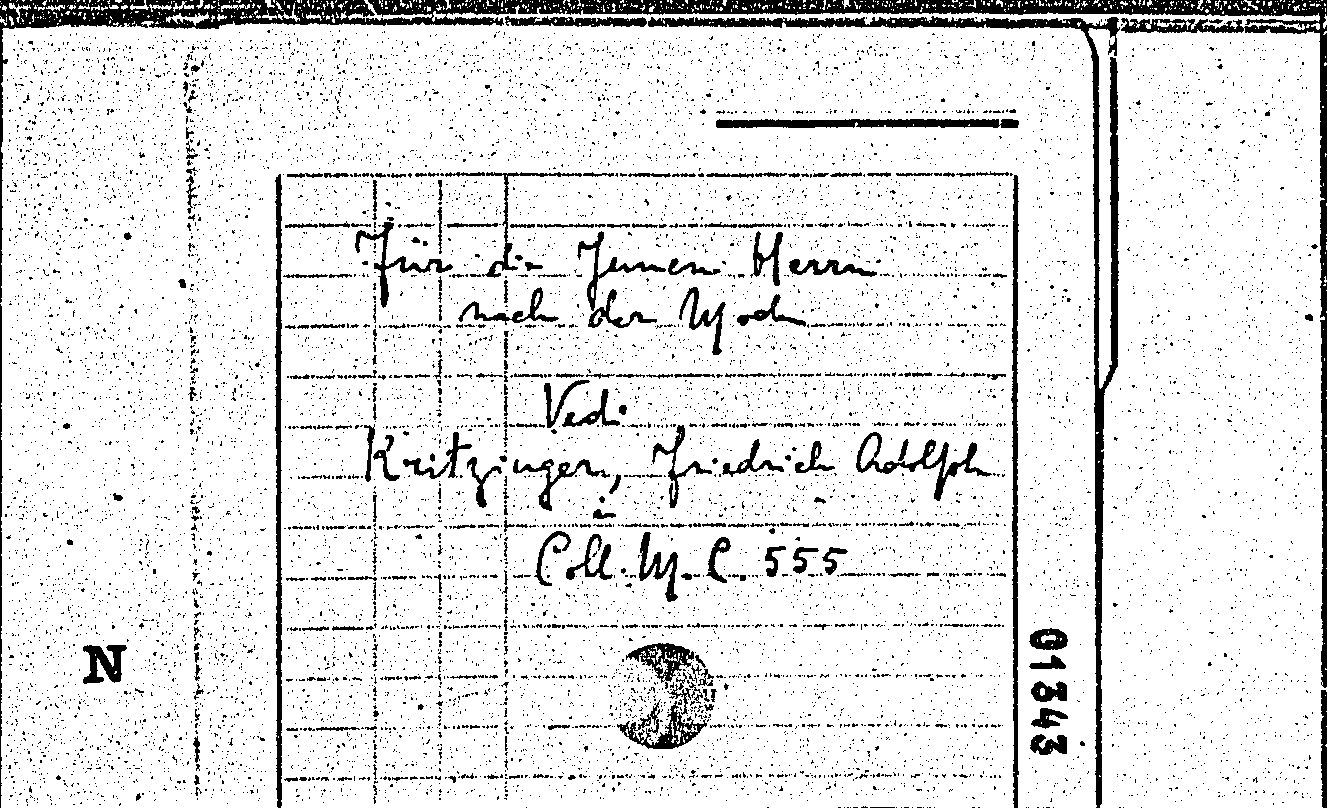 Für die Jungen Herrn
nach der Mode
Vedi
Kritzinger, Friedrich Adolph
in
Coll. M. C. 555
N
01343